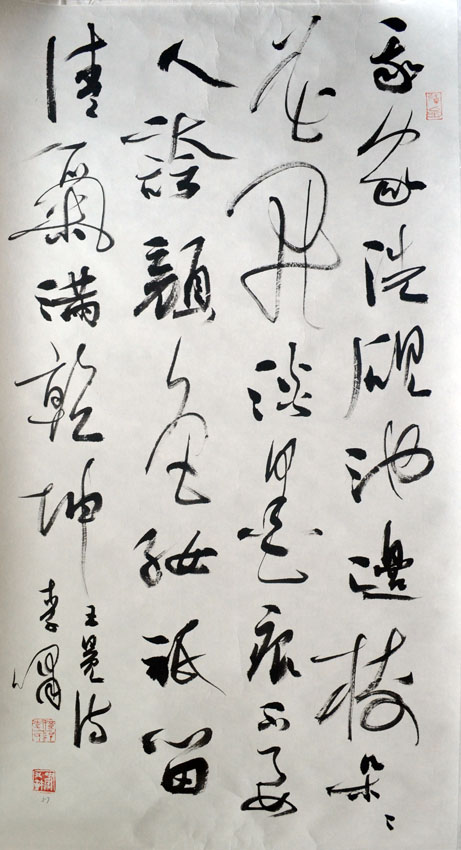 我家洗硯池邊樹朵〻
花開淡墨痕不要
人誇顏色好祇留
清氣滿乾坤
王冕诗
李